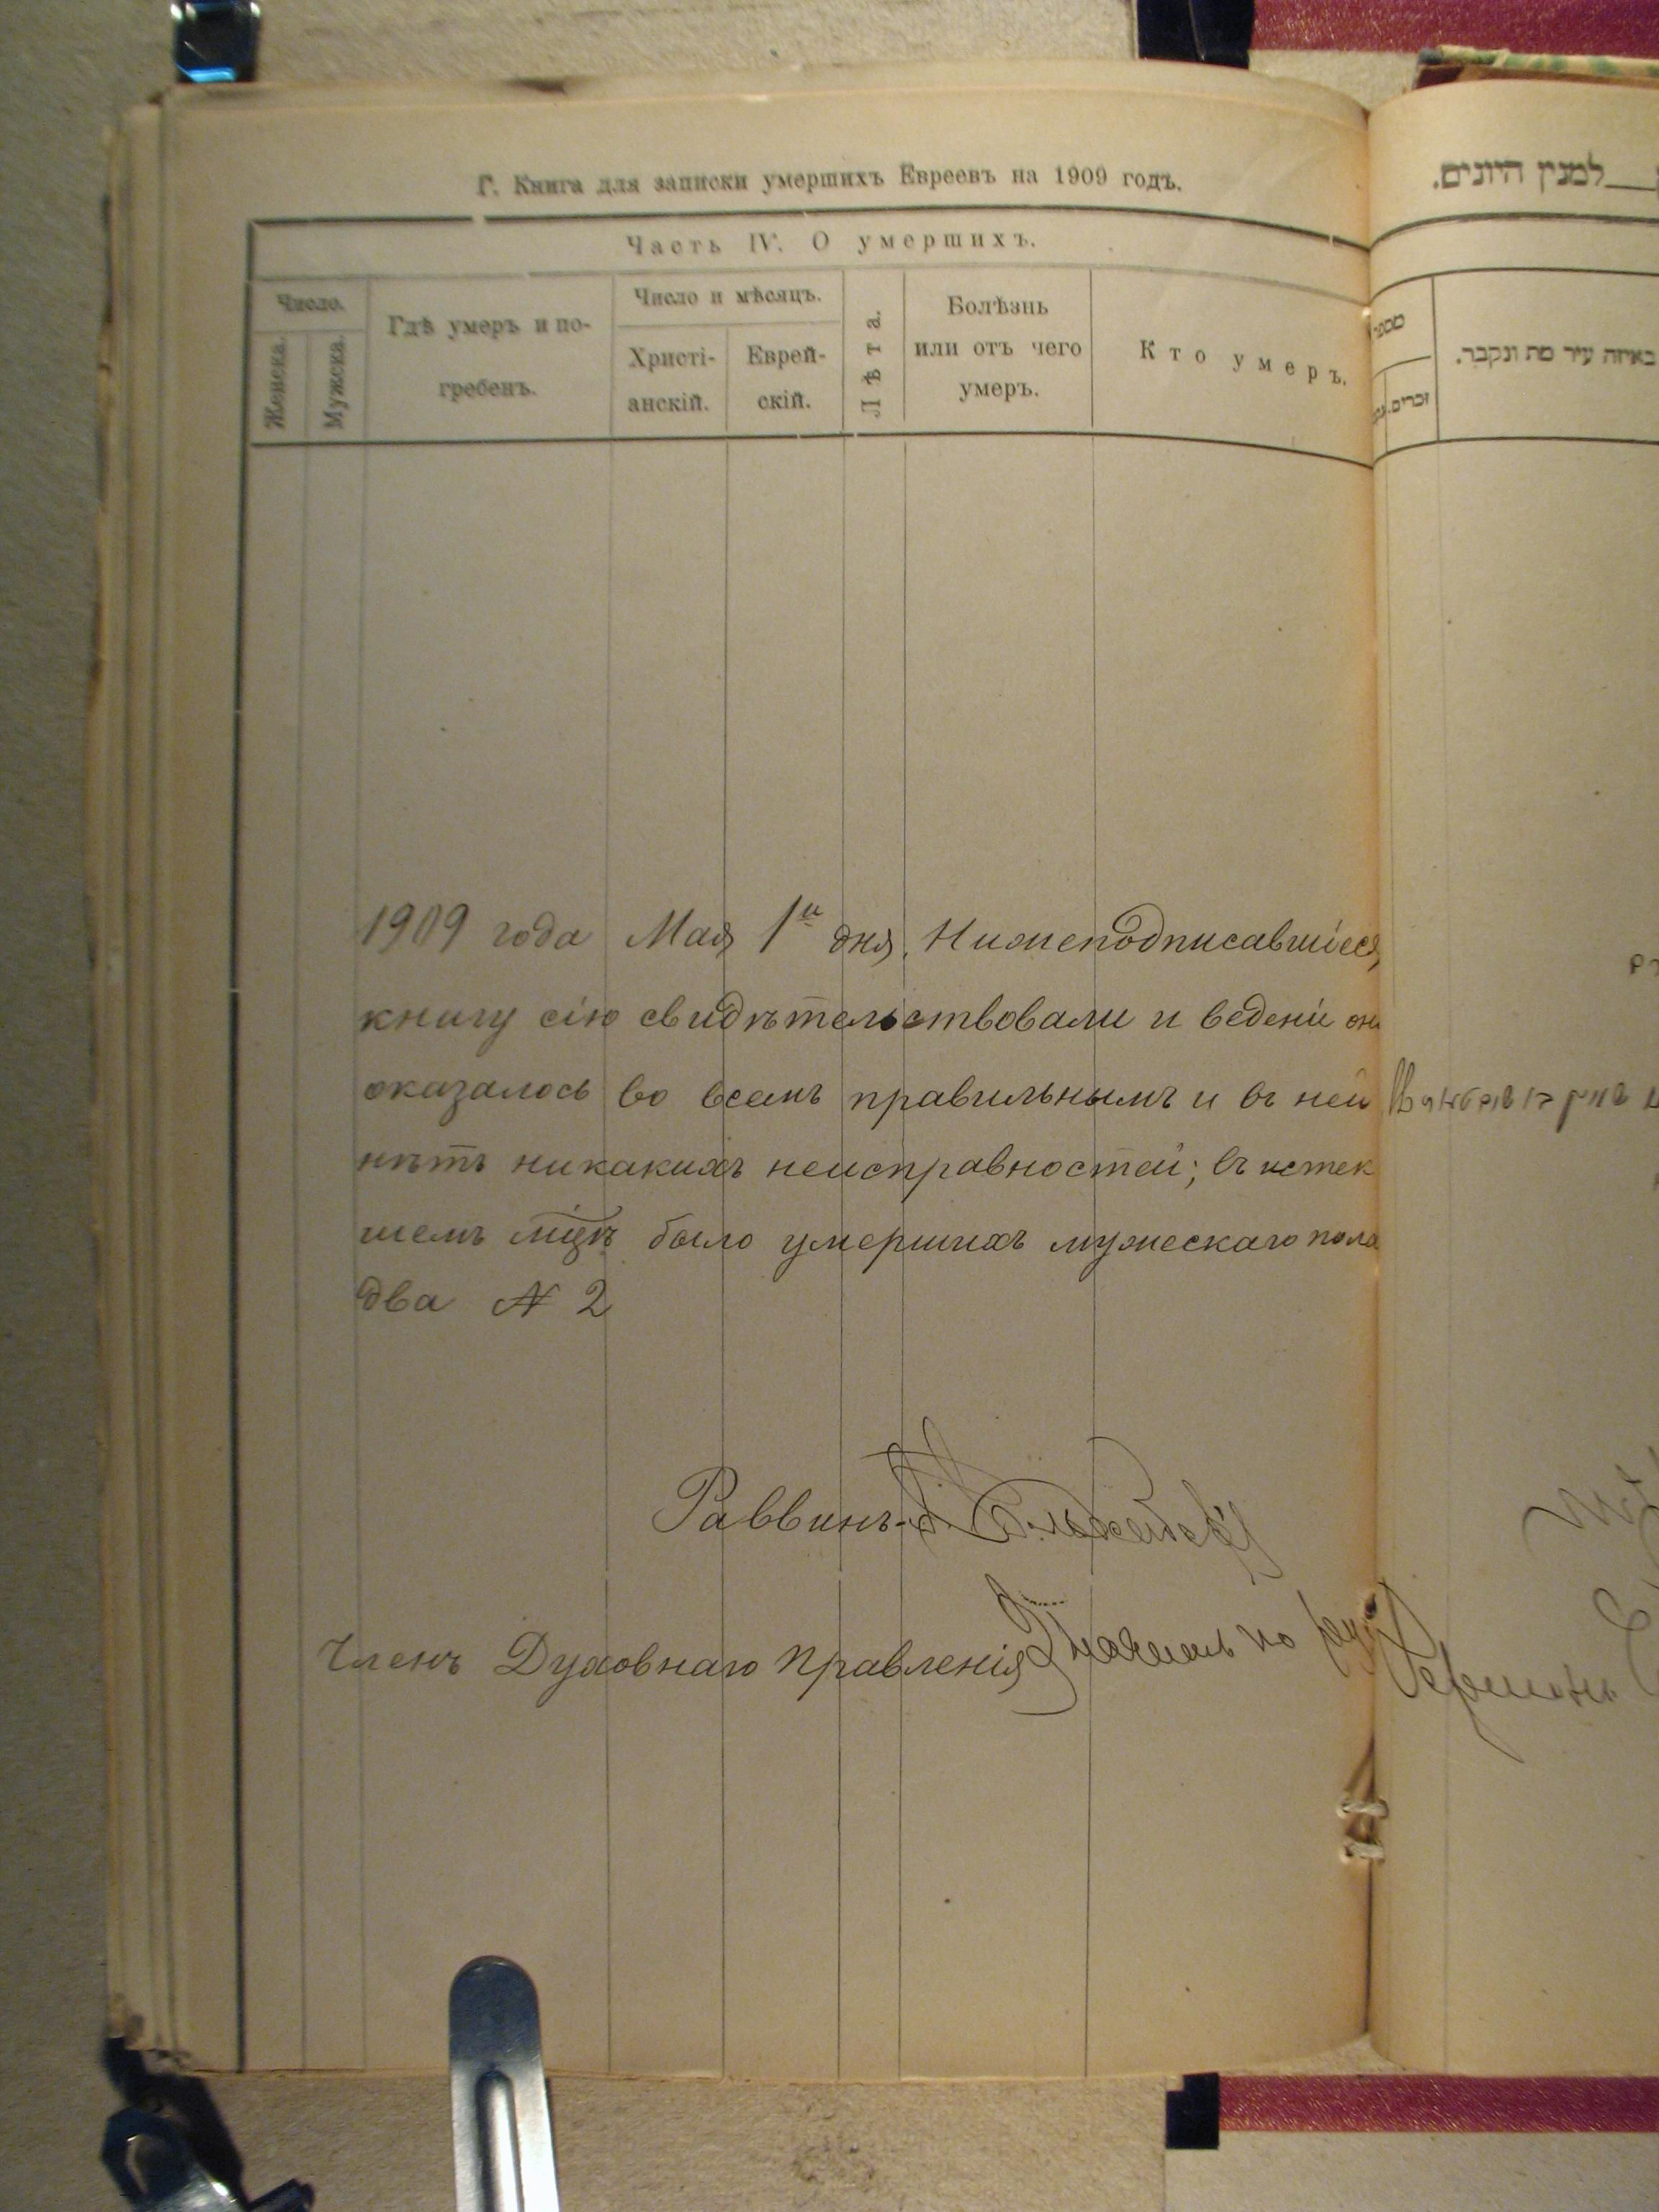 Г. Книга для записки умершихъ Евреевъ на 1909 годъ.
Часть IV. О умершихъ.
Число.
Женска.
Мужска.
Гдѣ умеръ и по-
гребенъ.
Число и мѣсяцъ.
Христі-
анскій.
Еврей-
скій.
Лѣта.
Болѣзнь
или отъ чего
умеръ.
Кто умеръ.
1909 года Мая 1го дня. Нижеподписавшіеся,
книгу сію свидѣтельствовали и ведени
оказалось во всемъ правильнымъ и въ ней
нѣтъ никакихъ неисправностей; въ истек
шемъ мцѣ было умершихъ мужескаго пола
два N 2
Раввинъ
Членъ Духовнаго Правленія
למנין היונים.
באיזה עיר מת ונקבר.
זכרים.